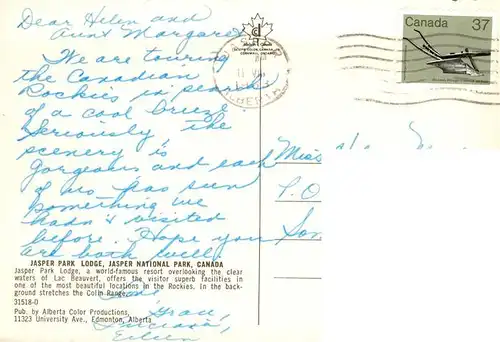 Dear Helen and
Aunt Margaret
We are touring
the Canadian
Rockies in search
of a cool breeze
Seriously the
scenery is
gorgeous and each
of us has seen
something we
hadn't visited
before. Hope you
are both well.
Love,
Eileen
Canada 37
Miss
P.O
JASPER PARK LODGE, JASPER NATIONAL PARK, CANADA
Jasper Park Lodge, a world-famous resort overlooking the clear
waters of Lac Beauvert, offers the visitor superb facilities in
one of the most beautiful locations in the Rockies. In the back-
ground stretches the Colin Range.
31518-D
Pub. by Alberta Color Productions,
11323 University Ave., Edmonton, Alberta